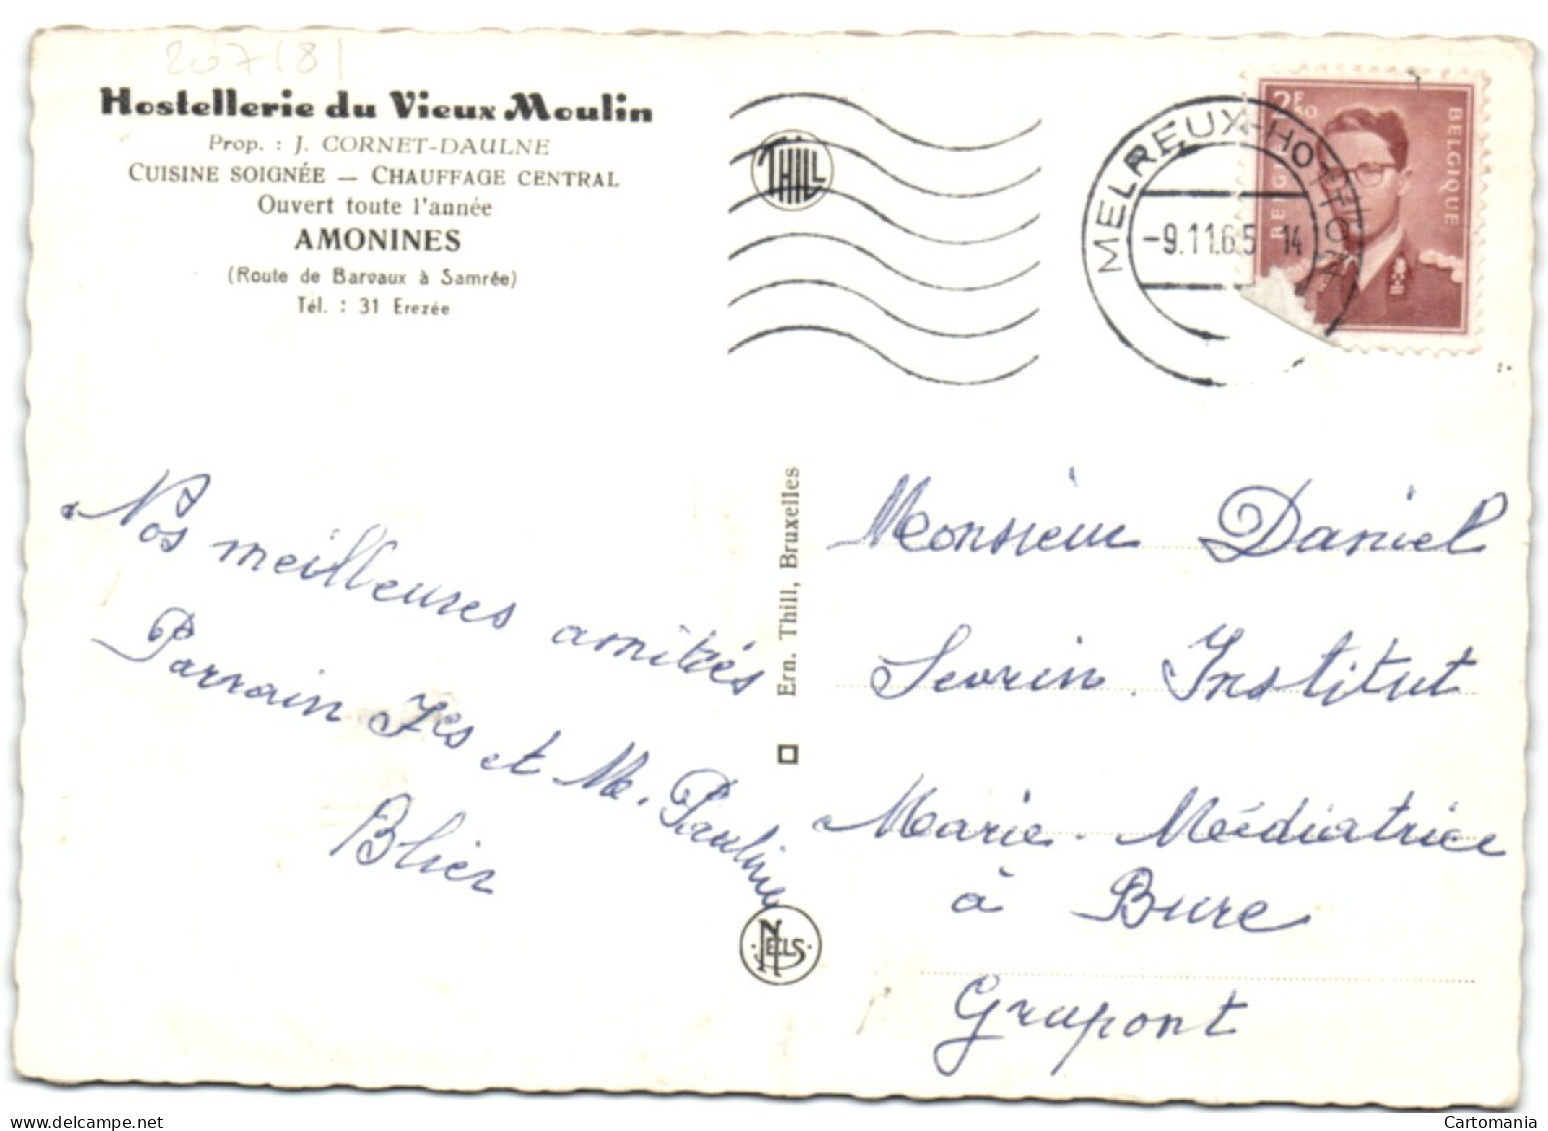 207/8/
Hostellerie du Vieux Moulin
Prop. : J. CORNET-DAULNE
CUISINE SOIGNÉE — CHAUFFAGE CENTRAL
Ouvert toute l'année
AMONINES
(Route de Barvaux à Samrée)
Tél. : 31 Erezée
THILL
MELREUX-HOTTON
-9.11.65 14
2F50
BELGIQUE
BELGI
Nos meilleures amitiés
Parrain Jes et M. Pauline
Blier
Ern. Thill, Bruxelles
NELS
Monsieur Daniel
Sevrin. Institut
Marie. Médiatrice
à Bure
Grupont
www.delcampe.net
Cartomania